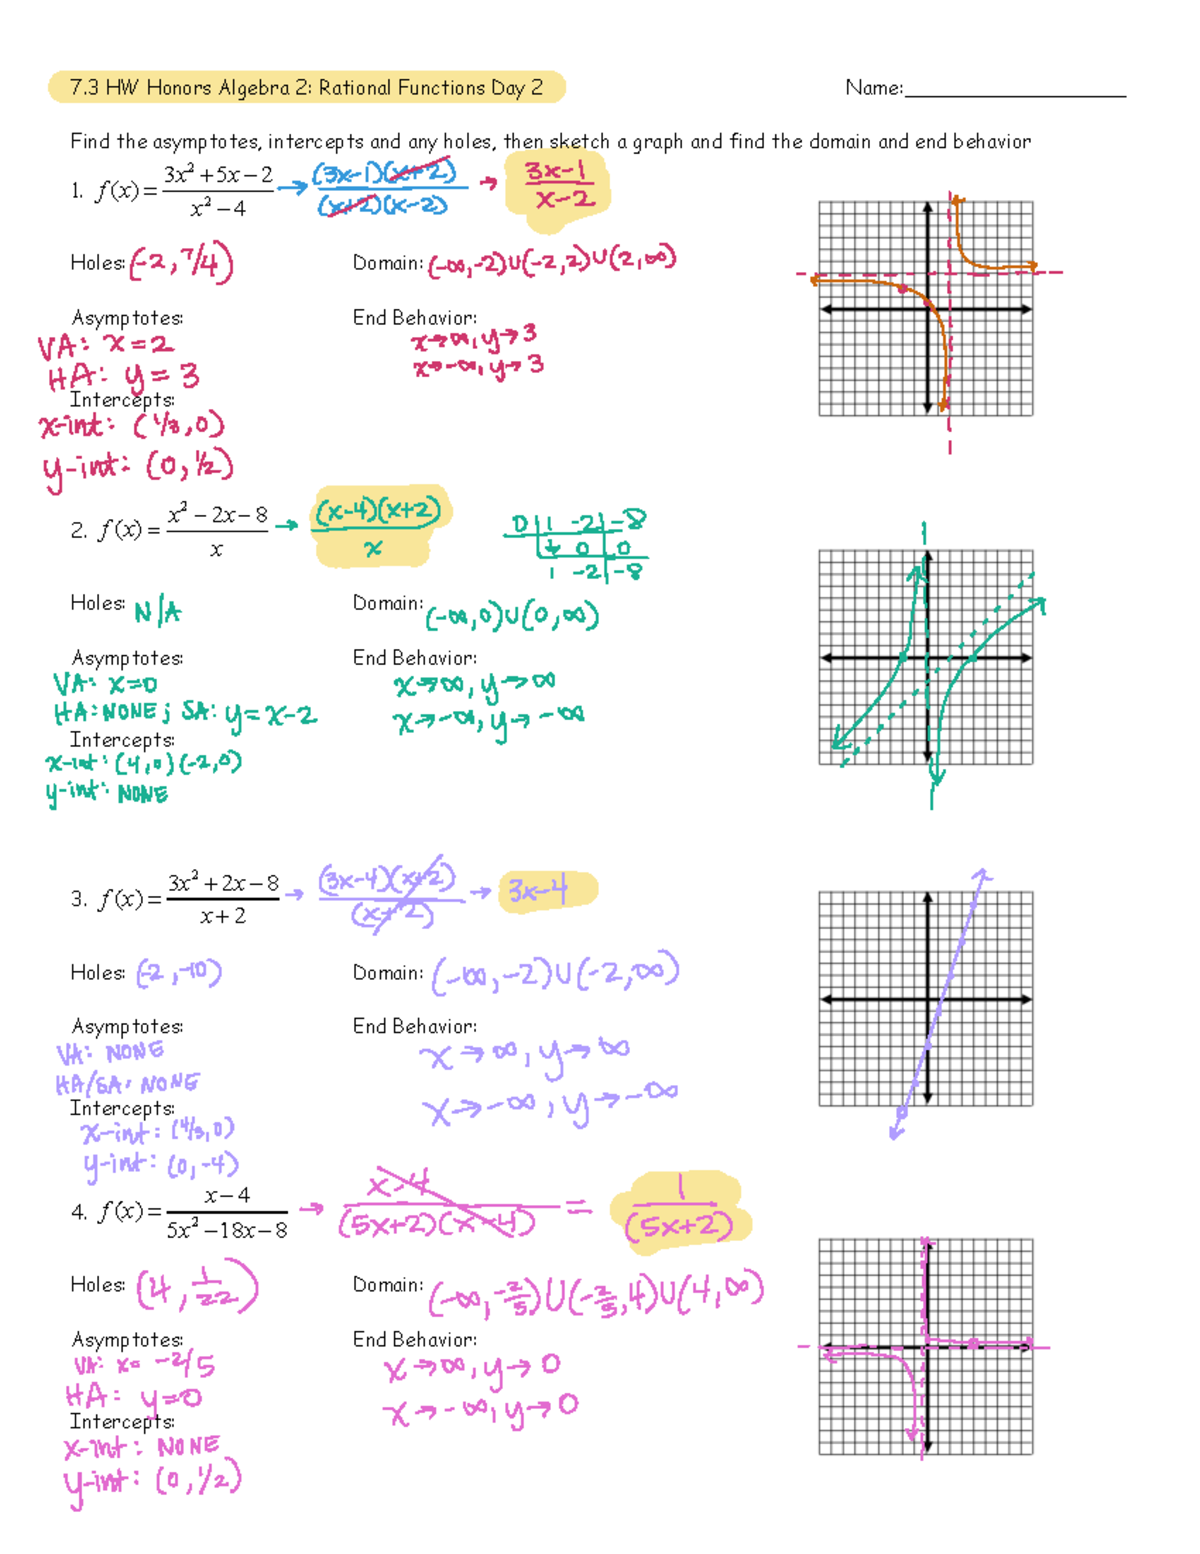 7.3 HW Honors Algebra 2: Rational Functions Day 2 Name:____________________
Find the asymptotes, intercepts and any holes, then sketch a graph and find the domain and end behavior
1. f(x) = (3x² + 5x − 2)/(x² − 4) → (3x−1)(x+2)/(x+2)(x−2) → (3x−1)/(x−2)
Holes: (−2, 7/4) Domain: (−∞,−2)∪(−2,2)∪(2,∞)
Asymptotes: End Behavior:
VA: x=2 x→∞, y→3
HA: y=3 x→−∞, y→3
Intercepts:
x-int: (1/3,0)
y-int: (0,1/2)
2. f(x) = (x² − 2x − 8)/x → (x−4)(x+2)/x
0 | 1 −2 | −8
↓ 0 | 0
1 −2 | −8
Holes: N/A Domain: (−∞,0)∪(0,∞)
Asymptotes: End Behavior:
VA: x=0 x→∞, y→∞
HA: NONE; SA: y=x−2 x→−∞, y→−∞
Intercepts:
x-int: (4,0)(−2,0)
y-int: NONE
3. f(x) = (3x² + 2x − 8)/(x + 2) → (3x−4)(x+2)/(x+2) → 3x−4
Holes: (−2,−10) Domain: (−∞,−2)∪(−2,∞)
Asymptotes: End Behavior:
VA: NONE x→∞, y→∞
HA/SA: NONE x→−∞, y→−∞
Intercepts:
x-int: (4/3,0)
y-int: (0,−4)
4. f(x) = (x − 4)/(5x² − 18x − 8) → x−4/(5x+2)(x−4) = 1/(5x+2)
Holes: (4, 1/22) Domain: (−∞,−2/5)∪(−2/5,4)∪(4,∞)
Asymptotes: End Behavior:
VA: x= −2/5 x→∞, y→0
HA: y=0 x→−∞, y→0
Intercepts:
x-int: NONE
y-int: (0,1/2)